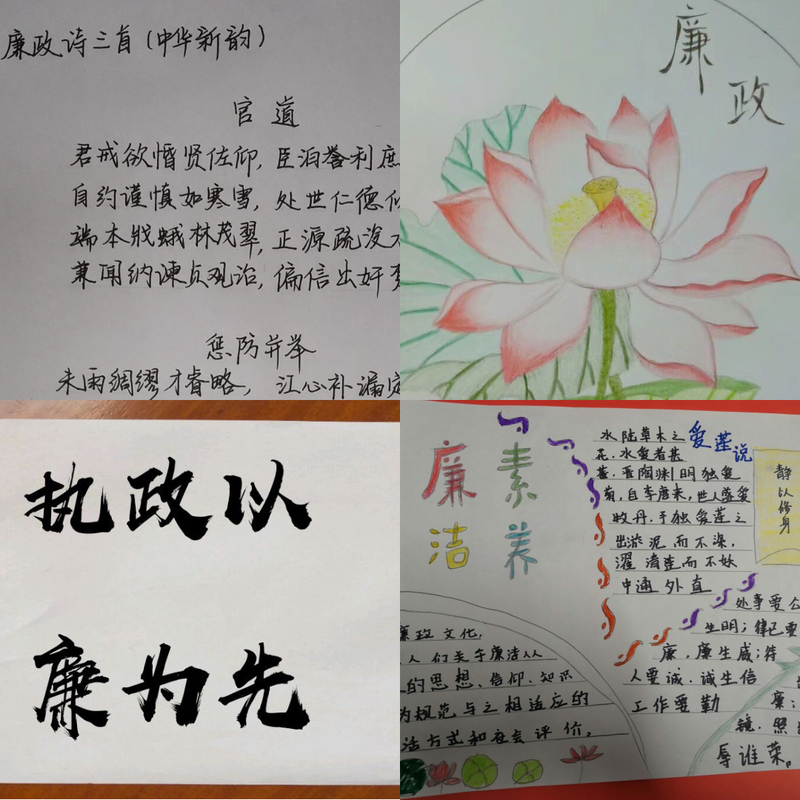 廉政诗三首(中华新韵)
官道
君戒欲惛贤佐仰,臣泊誉利庶
自约谨慎如寒雪,处世仁德
端本戕蛾林茂翠,正源疏浚
兼闻纳谏贞观治,偏信出奸
惩防并举
未雨绸缪才睿略,江心补漏
廉
政
执政以
廉为先
廉洁
素养
爱莲说
水陆草木之
花,水爱者甚
蕃.晋陶渊明独爱
菊,自李唐来,世人盛爱
牡丹.予独爱莲之
出淤泥而不染,
濯清涟而不妖
中通外直
静以修身
处事要公
生明;律己要
廉,廉生威;待
人要诚.诚生信
工作要勤
廉:
镜.照
辱谁荣。
廉政文化,
人们关于廉洁从
的思想、信仰、知识
为规范与之相适应的
活方式和社会评价。